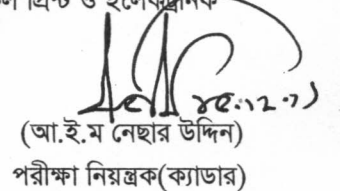 প্রিন্ট ও ইলেকট্রনিক
(আ.ই.ম নেছার উদ্দিন)
পরীক্ষা নিয়ন্ত্রক(ক্যাডার)